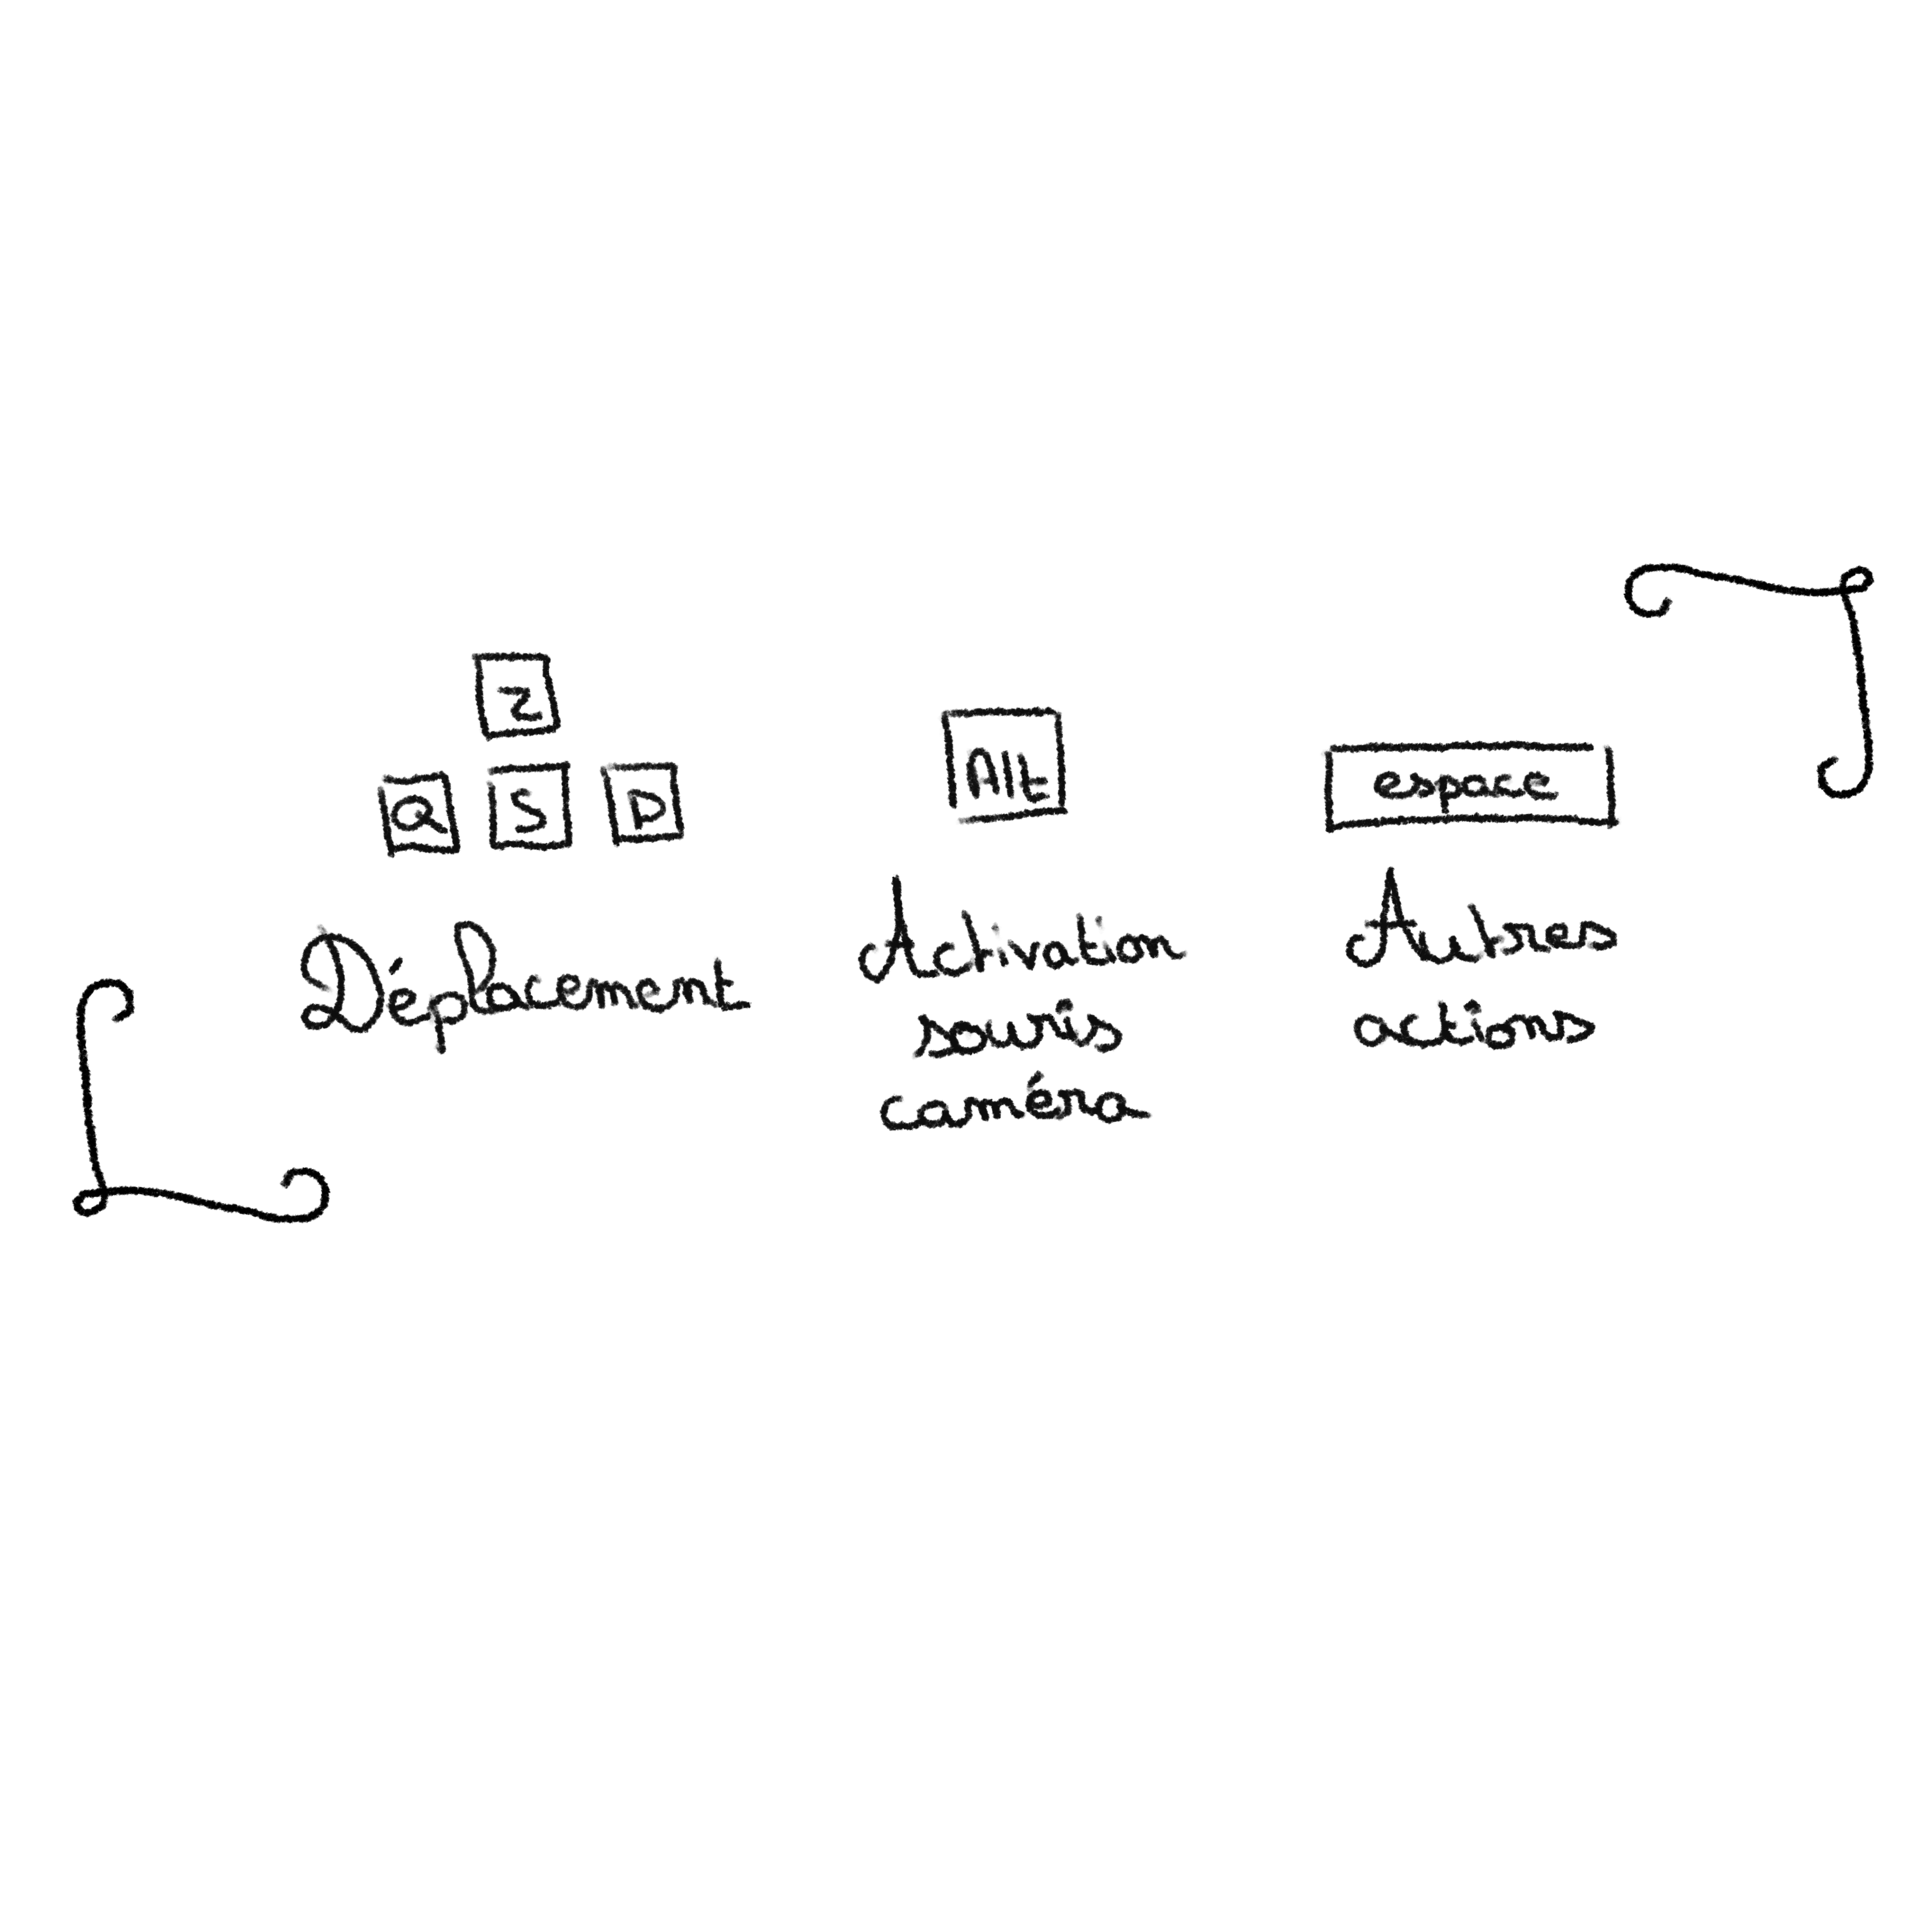 Z
Q S D
Déplacement
Alt
Activation
souris
caméra
espace
Autres
actions